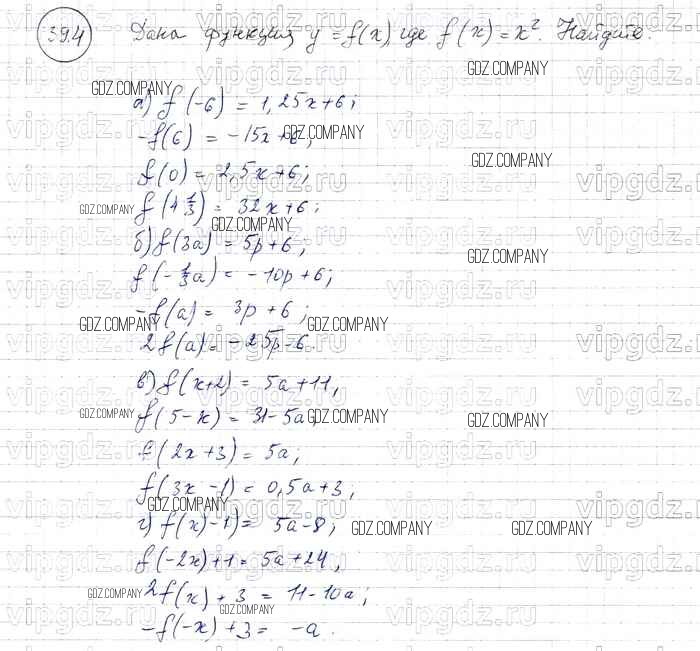 39.4 Дана функция y = f(x), где f(x) = x². Найдите:
а) f(-6) = 1,25x+6;
-f(6) = -15x+6;
f(0) = 2,5x+6;
f(4 1/3) = 32x+6;
б) f(3a) = 5p+6;
f(-1/3a) = -10p+6;
-f(a) = 3p+6;
2f(a) = -25p-6.
в) f(x+2) = 5a+11,
f(5-x) = 31-5a,
f(2x+3) = 5a,
f(3x-1) = 0,5a+3;
г) f(x)-1) = 5a-8;
f(-2x)+1 = 5a+24,
2f(x)+3 = 11-10a;
-f(-x)+3 = -a.
GDZ.COMPANY
vipgdz.ru